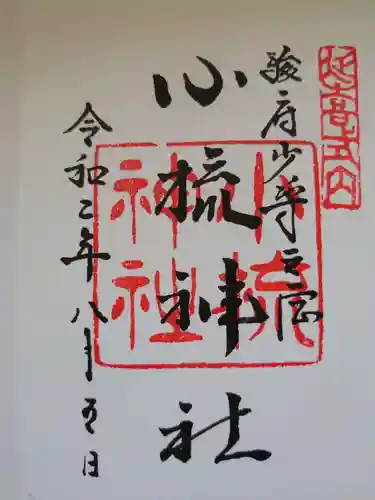 延喜式内
駿府少将宮
小梳神社
小梳神社
令和二年八月五日